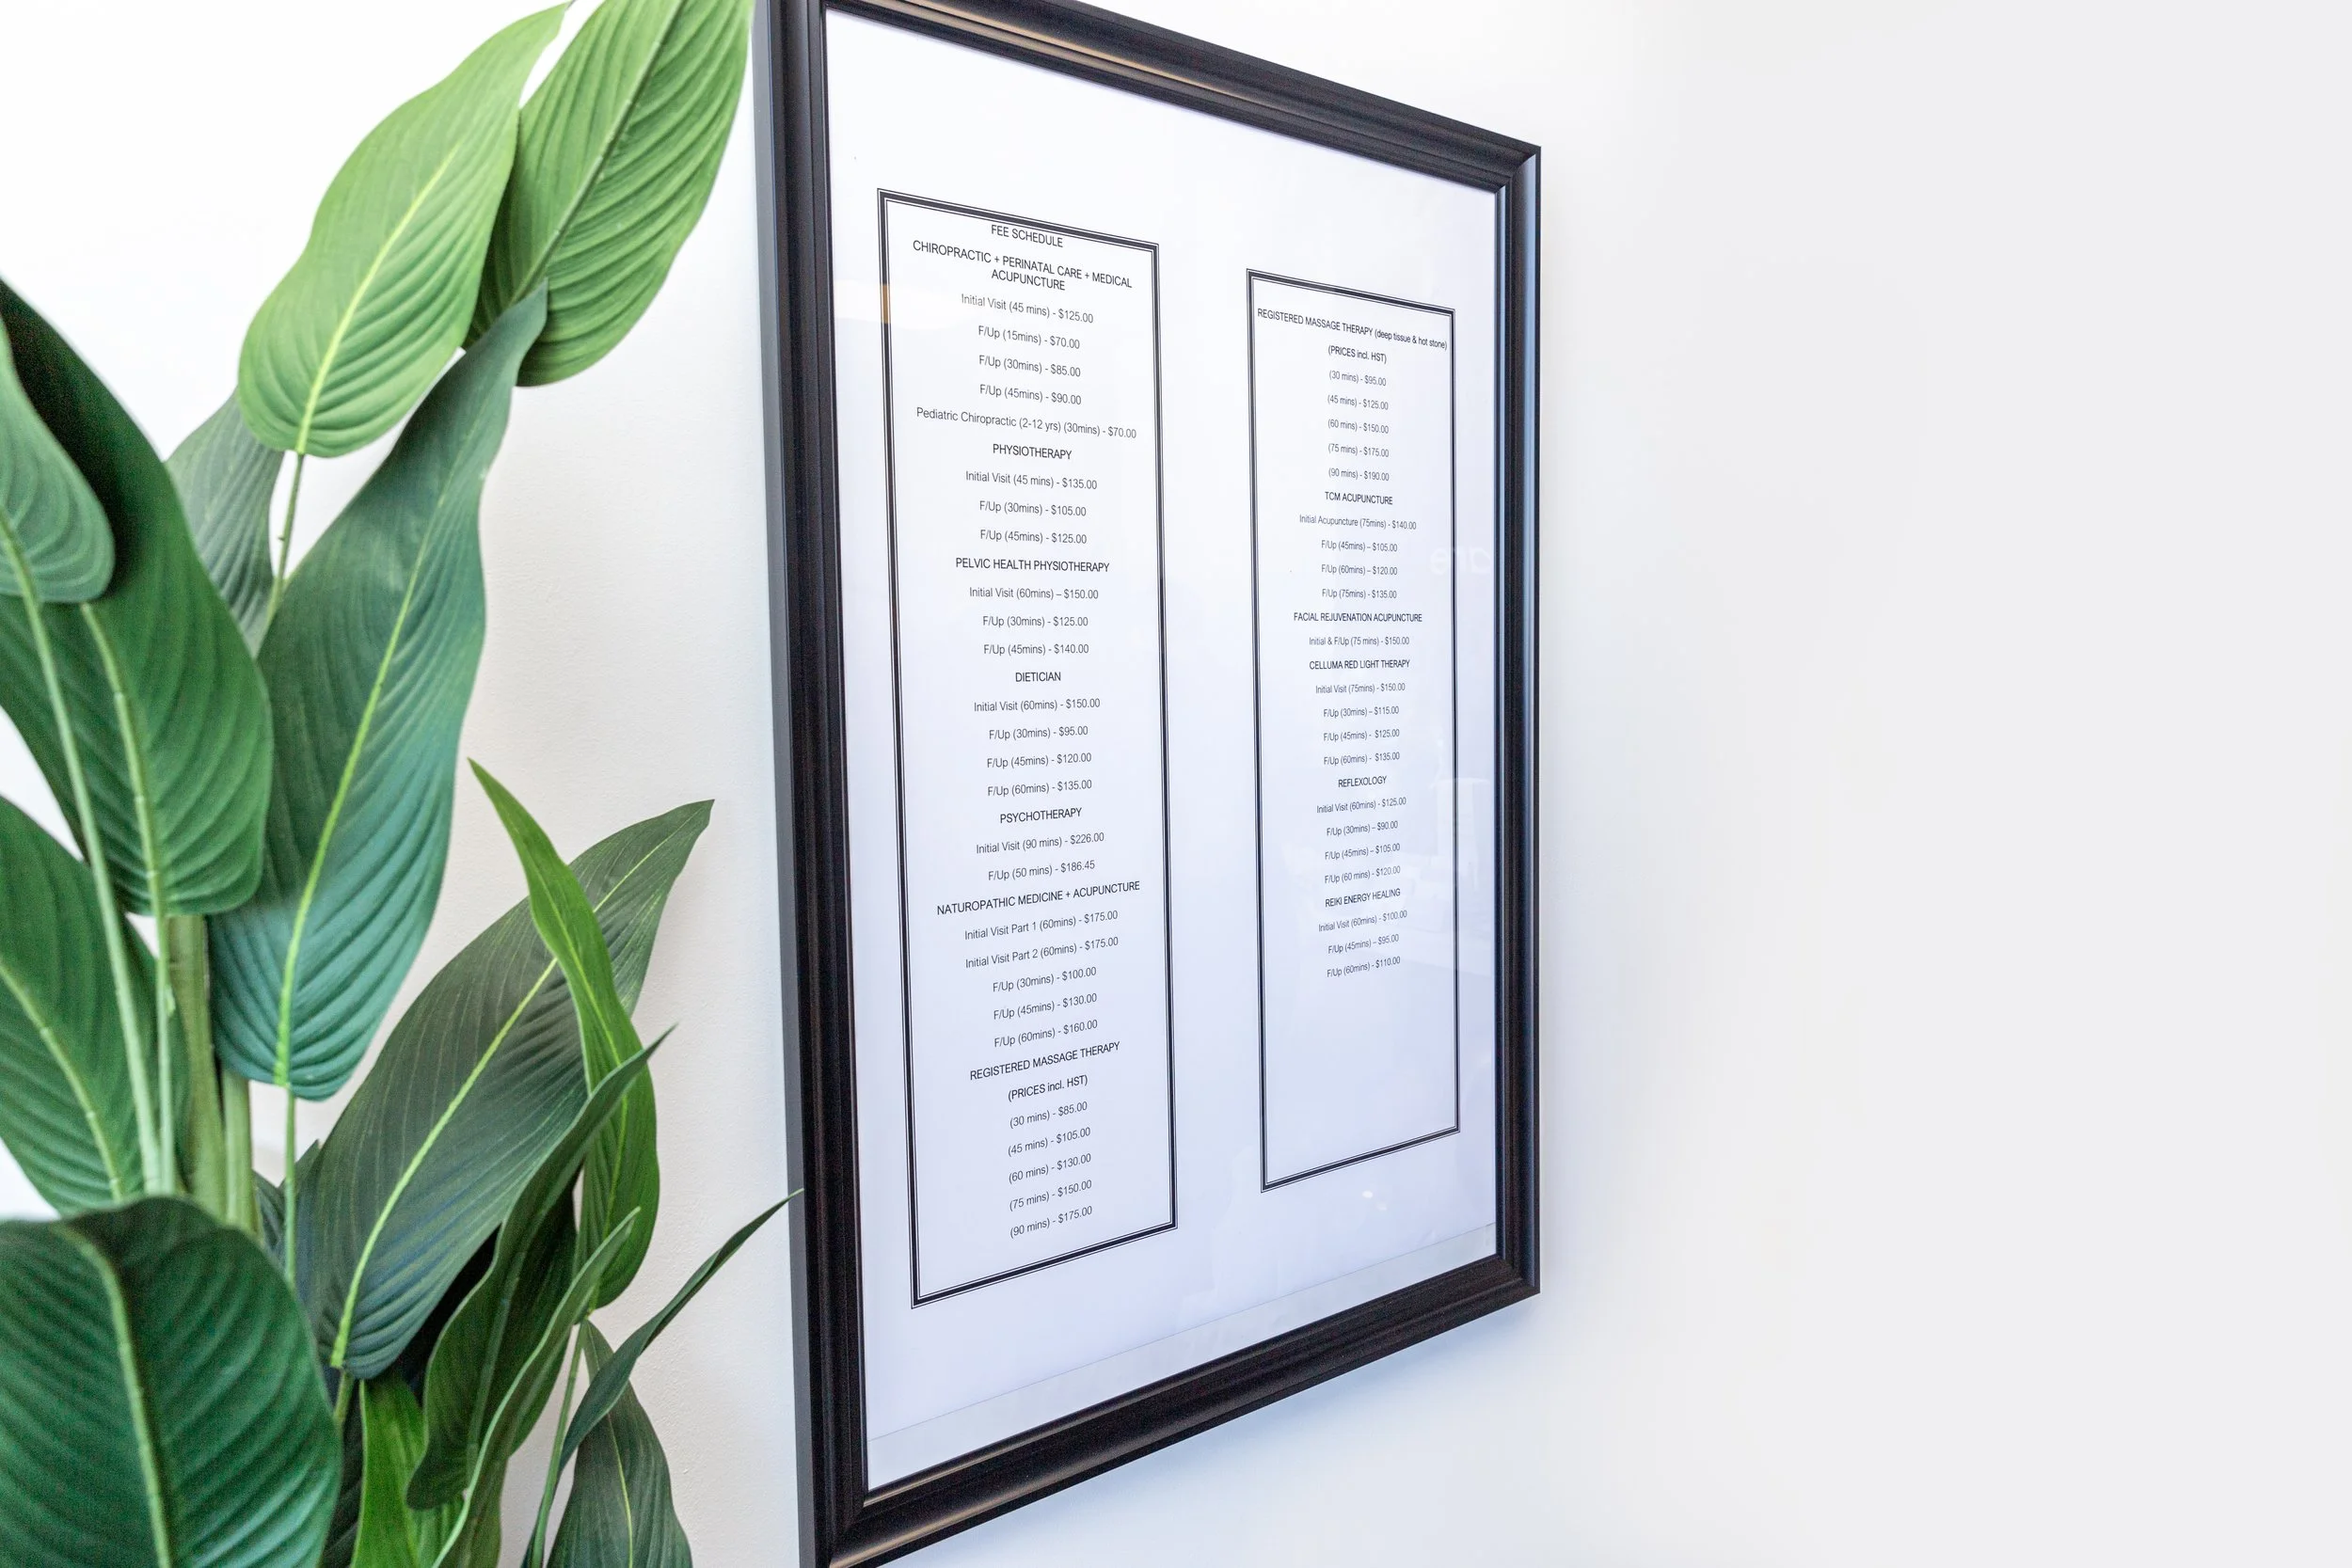 FEE SCHEDULE
CHIROPRACTIC + PERINATAL CARE + MEDICAL
ACUPUNCTURE
Initial Visit (45 mins) - $125.00
F/Up (15mins) - $70.00
F/Up (30mins) - $85.00
F/Up (45mins) - $90.00
Pediatric Chiropractic (2-12 yrs) (30mins) - $70.00
PHYSIOTHERAPY
Initial Visit (45 mins) - $135.00
F/Up (30mins) - $105.00
F/Up (45mins) - $125.00
PELVIC HEALTH PHYSIOTHERAPY
Initial Visit (60mins) – $150.00
F/Up (30mins) - $125.00
F/Up (45mins) - $140.00
DIETICIAN
Initial Visit (60mins) - $150.00
F/Up (30mins) - $95.00
F/Up (45mins) - $120.00
F/Up (60mins) - $135.00
PSYCHOTHERAPY
Initial Visit (90 mins) - $226.00
F/Up (50 mins) - $186.45
NATUROPATHIC MEDICINE + ACUPUNCTURE
Initial Visit Part 1 (60mins) - $175.00
Initial Visit Part 2 (60mins) - $175.00
F/Up (30mins) - $100.00
F/Up (45mins) - $130.00
F/Up (60mins) - $160.00
REGISTERED MASSAGE THERAPY
(PRICES incl. HST)
(30 mins) - $85.00
(45 mins) - $105.00
(60 mins) - $130.00
(75 mins) - $150.00
(90 mins) - $175.00
REGISTERED MASSAGE THERAPY (deep tissue & hot stone)
(PRICES incl. HST)
(30 mins) - $95.00
(45 mins) - $125.00
(60 mins) - $150.00
(75 mins) - $175.00
(90 mins) - $190.00
TCM ACUPUNCTURE
Initial Acupuncture (75mins) - $140.00
F/Up (45mins) – $105.00
F/Up (60mins) – $120.00
F/Up (75mins) - $135.00
FACIAL REJUVENATION ACUPUNCTURE
Initial & F/Up (75 mins) - $150.00
CELLUMA RED LIGHT THERAPY
Initial Visit (75mins) - $150.00
F/Up (30mins) – $115.00
F/Up (45mins) - $125.00
F/Up (60mins) - $135.00
REFLEXOLOGY
Initial Visit (60mins) - $125.00
F/Up (30mins) – $90.00
F/Up (45mins) – $105.00
F/Up (60 mins) – $120.00
REIKI ENERGY HEALING
Initial Visit (60mins) - $100.00
F/Up (45mins) – $95.00
F/Up (60mins) - $110.00